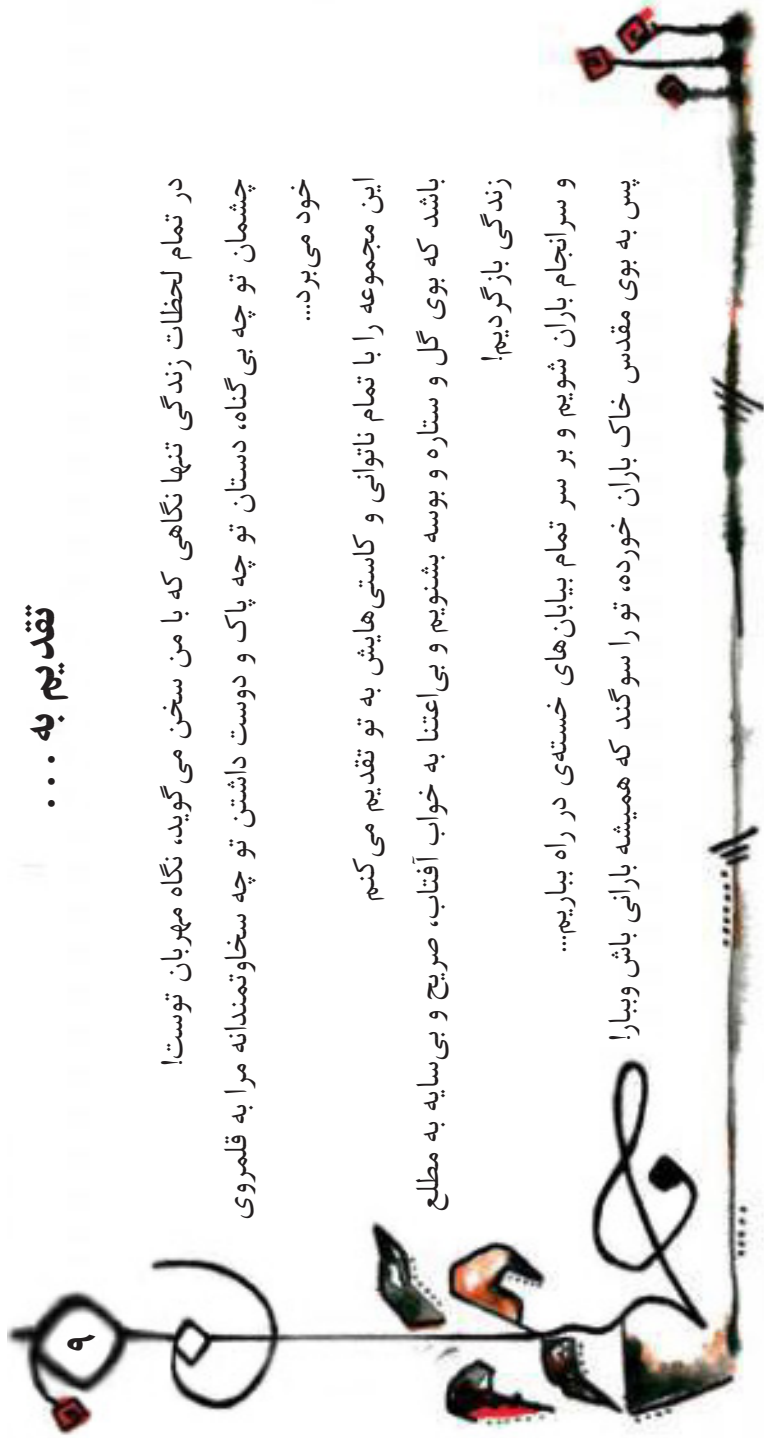 تقدیم به ...
در تمام لحظات زندگی تنها نگاهی که با من سخن می‌گوید، نگاه مهربان توست!
چشمان تو چه بی‌گناه، دستان تو چه پاک و دوست داشتن تو چه سخاوتمندانه مرا به قلمروی
خود می‌برد...
این مجموعه را با تمام ناتوانی و کاستی‌هایش به تو تقدیم می‌کنم
باشد که بوی گل و ستاره و بوسه بشنویم و بی‌اعتنا به خواب آفتاب، صریح و بی‌سایه به مطلع
زندگی بازگردیم!
و سرانجام باران شویم و بر سر تمام بیابان‌های خسته‌ی در راه بباریم...
پس به بوی مقدس خاک باران خورده، تو را سوگند که همیشه بارانی باش وببار!
۹